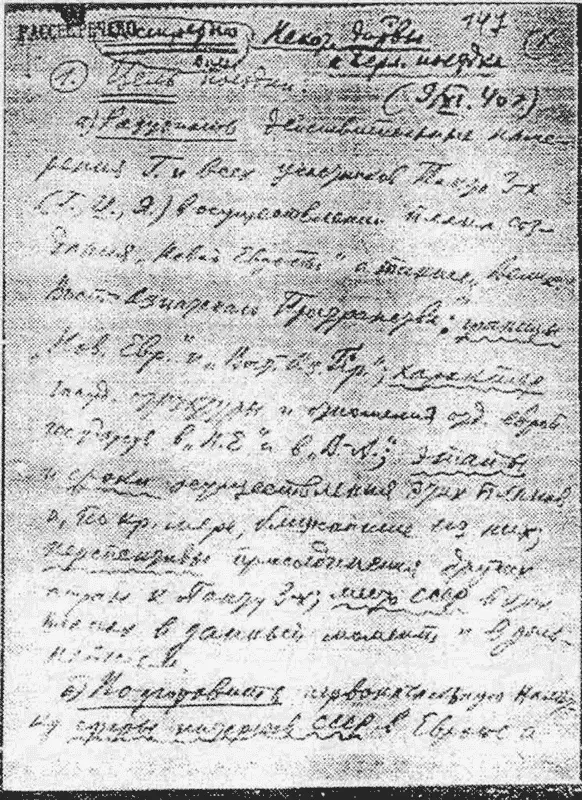 147
РАССЕКРЕЧЕНО секретно Некот. дир-вы
к Берл. поездке
1. Цель поездки. (9/XI. 40 г.)
а) Разузнать действительные наме-
рения Г. и всех участников Пакта 3-х
(Г., И., Я.) в осуществлении плана соз-
дания „Новой Европы“ а также „Велик.
Вост.-Азиатского Пространства“: границы
„Нов. Евр.“ и „Вост. Аз. Пр.“; характер
госуд. структуры и отношения отд. европ.
государств в „Н.Е“ и в „В-А“; этапы
и сроки осуществления этих планов
и, по кр. мере, ближайшие из них;
перспективы присоединения других
стран к Пакту 3-х; место СССР в этих
планах в данный момент и в даль-
нейшем.
б) Подготовить первоначальную намет-
ку сферы интересов СССР в Европе а